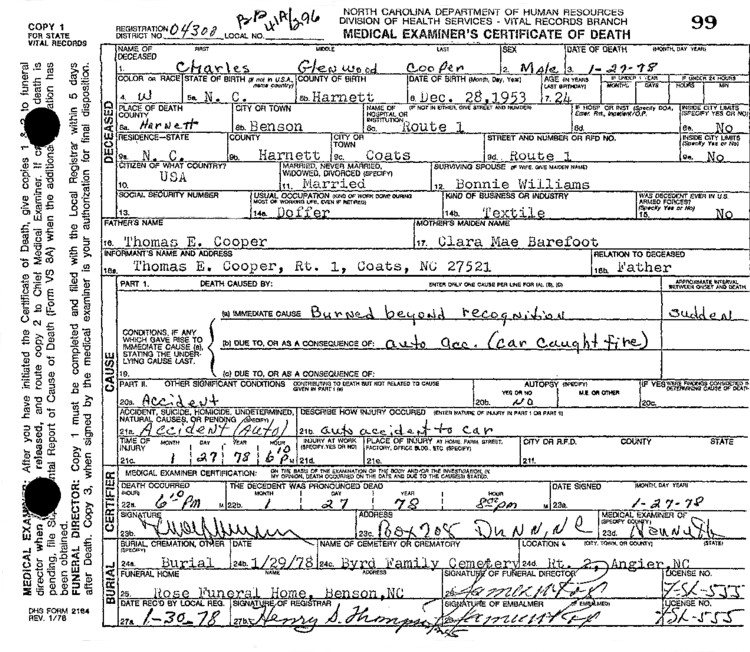 COPY 1
FOR STATE
VITAL RECORDS
NORTH CAROLINA DEPARTMENT OF HUMAN RESOURCES
DIVISION OF HEALTH SERVICES - VITAL RECORDS BRANCH
MEDICAL EXAMINER'S CERTIFICATE OF DEATH
99
REGISTRATION DISTRICT NO. 04300 LOCAL NO.
NAME OF DECEASED FIRST MIDDLE LAST SEX DATE OF DEATH (MONTH, DAY, YEAR)
1. Charles Glenwood Cooper 2. Male 3. 1-27-78
COLOR OR RACE STATE OF BIRTH (If not in U.S.A., name country) COUNTY OF BIRTH DATE OF BIRTH (Month, Day, Year) AGE (IN YEARS LAST BIRTHDAY) IF UNDER 1 YEAR MONTHS DAYS IF UNDER 24 HOURS HOURS MIN
4. W 5a. N. C. 5b. Harnett 6. Dec. 28, 1953 7. 24
PLACE OF DEATH COUNTY CITY OR TOWN NAME OF HOSPITAL OR INSTITUTION (IF NOT IN EITHER, GIVE STREET AND NUMBER) IF HOSP OR INST (Specify DOA, Emer. Rm., Inpatient/O.P. INSIDE CITY LIMITS (SPECIFY YES OR NO)
8a. Harnett 8b. Benson 8c. Route 1 8d. 8e. No
RESIDENCE-STATE COUNTY CITY OR TOWN STREET AND NUMBER OR RFD NO. INSIDE CITY LIMITS (Specify Yes or No)
9a. N. C. 9b. Harnett 9c. Coats 9d. Route 1 9e. No
CITIZEN OF WHAT COUNTRY? MARRIED, NEVER MARRIED, WIDOWED, DIVORCED (SPECIFY) SURVIVING SPOUSE (IF WIFE, GIVE MAIDEN NAME)
10. USA 11. Married 12. Bonnie Williams
SOCIAL SECURITY NUMBER USUAL OCCUPATION (KIND OF WORK DONE DURING MOST OF WORKING LIFE, EVEN IF RETIRED) KIND OF BUSINESS OR INDUSTRY WAS DECEDENT EVER IN U.S. ARMED FORCES? (Specify Yes or No)
13. 14a. Doffer 14b. Textile 15. No
FATHER'S NAME MOTHER'S MAIDEN NAME
16. Thomas E. Cooper 17. Clara Mae Barefoot
INFORMANT'S NAME AND ADDRESS RELATION TO DECEASED
18a. Thomas E. Cooper, Rt. 1, Coats, NC 27521 18b. Father
PART 1. DEATH CAUSED BY: ENTER ONLY ONE CAUSE PER LINE FOR (A), (B), (C) APPROXIMATE INTERVAL BETWEEN ONSET AND DEATH
(a) IMMEDIATE CAUSE Burned beyond recognition sudden
CONDITIONS, IF ANY WHICH GAVE RISE TO IMMEDIATE CAUSE (a), STATING THE UNDERLYING CAUSE LAST.
(b) DUE TO, OR AS A CONSEQUENCE OF: auto acc. (car caught fire)
19. (c) DUE TO, OR AS A CONSEQUENCE OF:
PART II. OTHER SIGNIFICANT CONDITIONS CONTRIBUTING TO DEATH BUT NOT RELATED TO CAUSE GIVEN IN PART I (A) AUTOPSY (SPECIFY) YES OR NO M.E OR OTHER IF YES WERE FINDINGS CONSIDERED IN DETERMINING CAUSE OF DEATH
20a. Accident 20b. No 20c.
ACCIDENT, SUICIDE, HOMICIDE, UNDETERMINED, NATURAL CAUSES, OR PENDING (SPECIFY) DESCRIBE HOW INJURY OCCURED (ENTER NATURE OF INJURY IN PART I OR PART II)
21a. Accident (Auto) 21b. auto accident to car
TIME OF INJURY MONTH DAY YEAR HOUR INJURY AT WORK (SPECIFY YES OR NO) PLACE OF INJURY AT HOME, FARM, STREET, FACTORY, OFFICE BLDG., ETC (SPECIFY) CITY OR R.F.D. COUNTY STATE
21c. 1 27 78 6 10 P M 21d. 21e. 21f.
MEDICAL EXAMINER CERTIFICATION: ON THE BASIS OF THE EXAMINATION OF THE BODY AND/OR THE INVESTIGATION, IN MY OPINION, DEATH OCCURRED ON THE DATE AND DUE TO THE CAUSE(S) STATED.
DEATH OCCURRED HOUR THE DECEDENT WAS PRONOUNCED DEAD MONTH DAY YEAR HOUR DATE SIGNED MONTH, DAY, YEAR
22a. 6 10 PM M 22b. 1 27 78 pm M 23a. 1-27-78
SIGNATURE ADDRESS MEDICAL EXAMINER OF (SPECIFY COUNTY)
23b. 23c. Box 708 Dunn, NC 23d. Harnett
BURIAL, CREMATION, OTHER (SPECIFY) DATE NAME OF CEMETERY OR CREMATORY LOCATION (CITY, TOWN, OR COUNTY) (STATE)
24a. Burial 24b. 1/29/78 24c. Byrd Family Cemetery 24d. Rt. 2, Angier, NC
FUNERAL HOME NAME ADDRESS SIGNATURE OF FUNERAL DIRECTOR LICENSE NO.
25. Rose Funeral Home, Benson, NC 26. FSL-555
DATE REC'D BY LOCAL REG. SIGNATURE OF REGISTRAR SIGNATURE OF EMBALMER LICENSE NO.
27a. 1-30-78 27b. Henry S. Thompson FSL-555
DECEASED
CAUSE
CERTIFIER
BURIAL
MEDICAL EXAMINER: After you have initiated the Certificate of Death, give copies 1 & 2 to funeral
director when released, and route copy 2 to Chief Medical Examiner. If death is
pending, file Supplemental Report of Cause of Death (Form VS 8A) when the additional has
been obtained.
FUNERAL DIRECTOR: Copy 1 must be completed and filed with the Local Registrar within 5 days
after Death. Copy 3, when signed by the medical examiner is your authorization for final disposition.
DHS FORM 2164
REV. 1/78